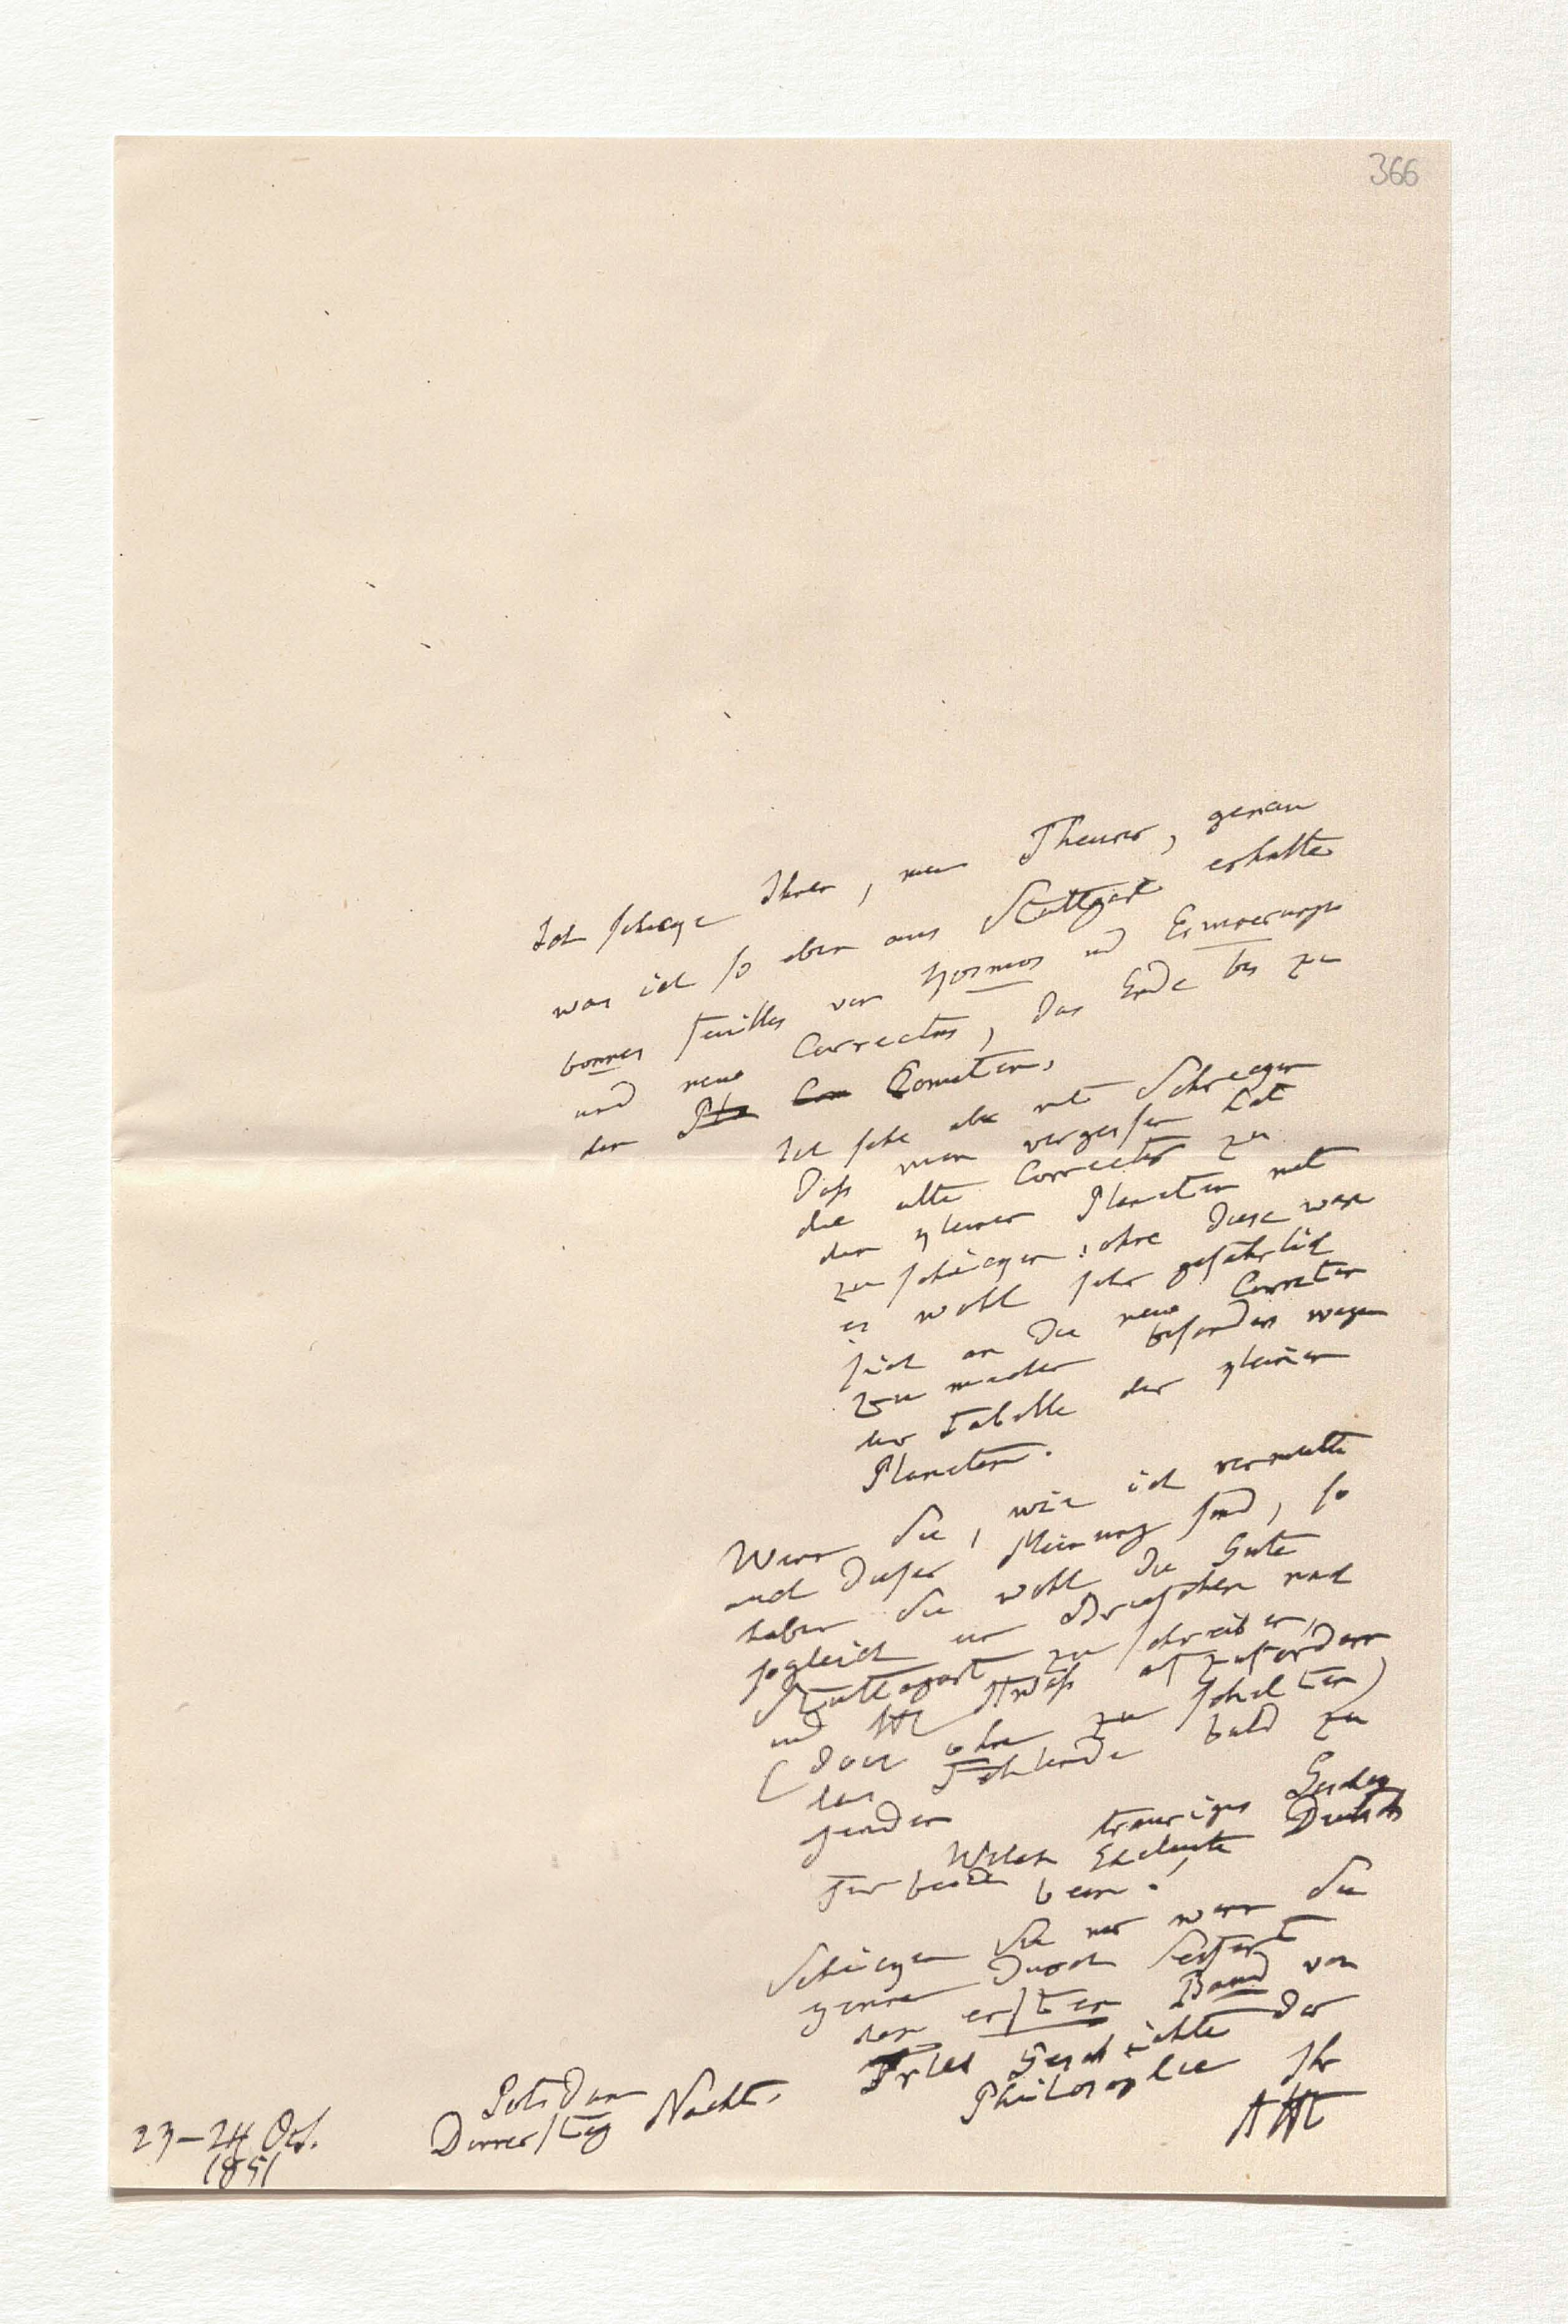 366
Ich schicke Ihnen, mein Theurer, genau
was ich so eben aus Stuttgart erhalte
bonnes feuilles von Kosmos und Erinnerungen
und neue Correctur, das Ende bis zu
den Pla Com Cometen.
Ich sehe aber mit Schrecken
daß man vergessen hat
die alte Correctur zu
den kleinen Planeten mit
zu schicken: ohne diese wäre
es wohl sehr gefährlich
sich an die neue Correctur
zu machen besonders wegen
der Tabelle der kleinen
Planeten.
Wenn Sie, wie ich vermuthe
auch dieser Meinung sind, so
haben Sie wohl die Güte
sogleich ein Briefchen nach
Stuttgart zu schreiben,
und aufzufordern
(doch ohne zu schelten)
das Fehlende bald zu
senden
Welch trauriges
für beide Eheleute
Schicken Sie mir wenn Sie
können durch Seifert
den ersten Band von
Fries Geschichte der
Philosophie Ihr
AHt
Potsdam
Donnerstag Nachts
23–24 Oct.
1851